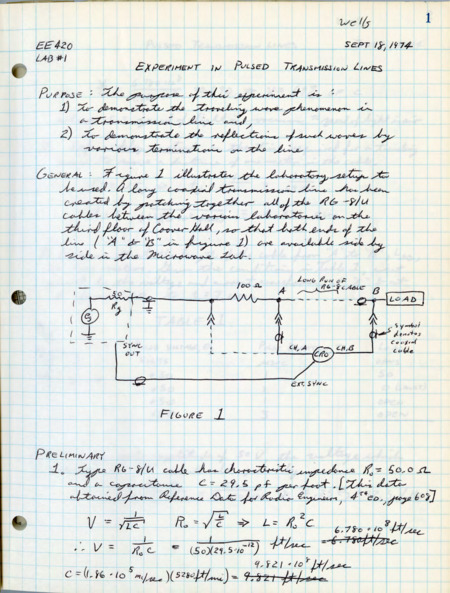 Wells
1
EE420
LAB #1
SEPT 18, 1974
EXPERIMENT IN PULSED TRANSMISSION LINES
PURPOSE: The purpose of this experiment is:
1) To demonstrate the traveling wave phenomenon in
a transmission line and,
2) To demonstrate the reflections of such waves by
various terminations on the line
GENERAL: Figure 1 illustrates the laboratory setup to
be used. A long coaxial transmission line has been
created by patching together all of the RG-8/U
cables between the various laboratories on the
third floor of Coover Hall, so that both ends of the
line ("A" & "B" in figure 1) are available side by
side in the Microwave Lab.
50
Rg
eg
SYNC
OUT
100 Ω
A
LONG RUN OF
RG-8 CABLE
B
LOAD
CH. A
CRO
CH. B
EXT. SYNC
Symbol
denotes
coaxial
cable
FIGURE 1
PRELIMINARY
1. Type RG-8/U cable has characteristic impedance R₀ = 50.0 Ω
and a capacitance C = 29.5 pf per foot. [This data
obtained from Reference Data for Radio Engineers, 4TH ED., page 608]
V = 1/√LC R₀ = √L/C ⇒ L = R₀²C
∴ V = 1/R₀C = 1/(50)(29.5·10⁻¹²) ft/sec 6.780·10⁸ ft/sec
= 6.780 ft/sec
C = (1.86·10⁵ mi/sec)(5280 ft/mi) = 9.821 ft/sec
9.821·10⁸ ft/sec